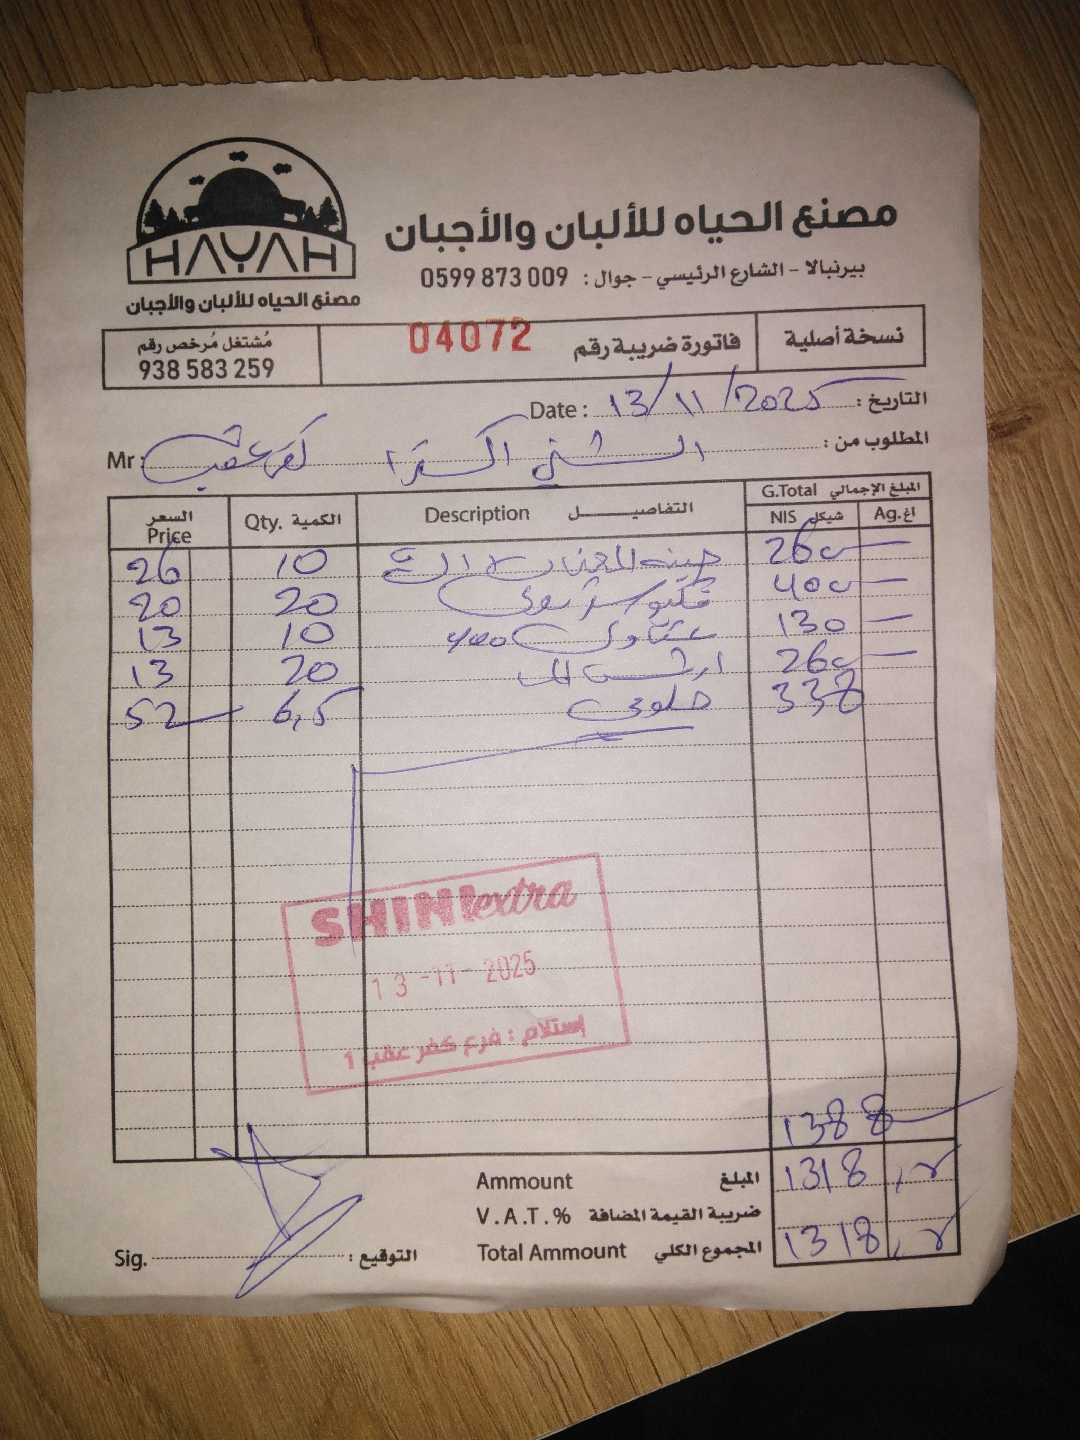 HAYAH
مصنع الحياه للألبان والأجبان
مصنع الحياه للألبان والأجبان
بيرنبالا - الشارع الرئيسي - جوال : 0599 873 009
نسخة أصلية
فاتورة ضريبة رقم 04072
مُشتغل مُرخص رقم
938 583 259
التاريخ : 13/11/2025 Date :
المطلوب من : الشني اكسترا كفر عقب Mr:
المبلغ الإجمالي G.Total
السعر Price الكمية Qty. التفاصيــــل Description شيكل NIS اغ. Ag.
26 10 260 —
20 20 400 —
13 10 400 130 —
13 20 260 —
52 6,5 حلوم 338
SHINI extra
13-11-2025
إستلام : فرع كفر عقب 1
1388
المبلغ Ammount 1318
ضريبة القيمة المضافة V.A.T.%
المجموع الكلي Total Ammount 1318
التوقيع : Sig.